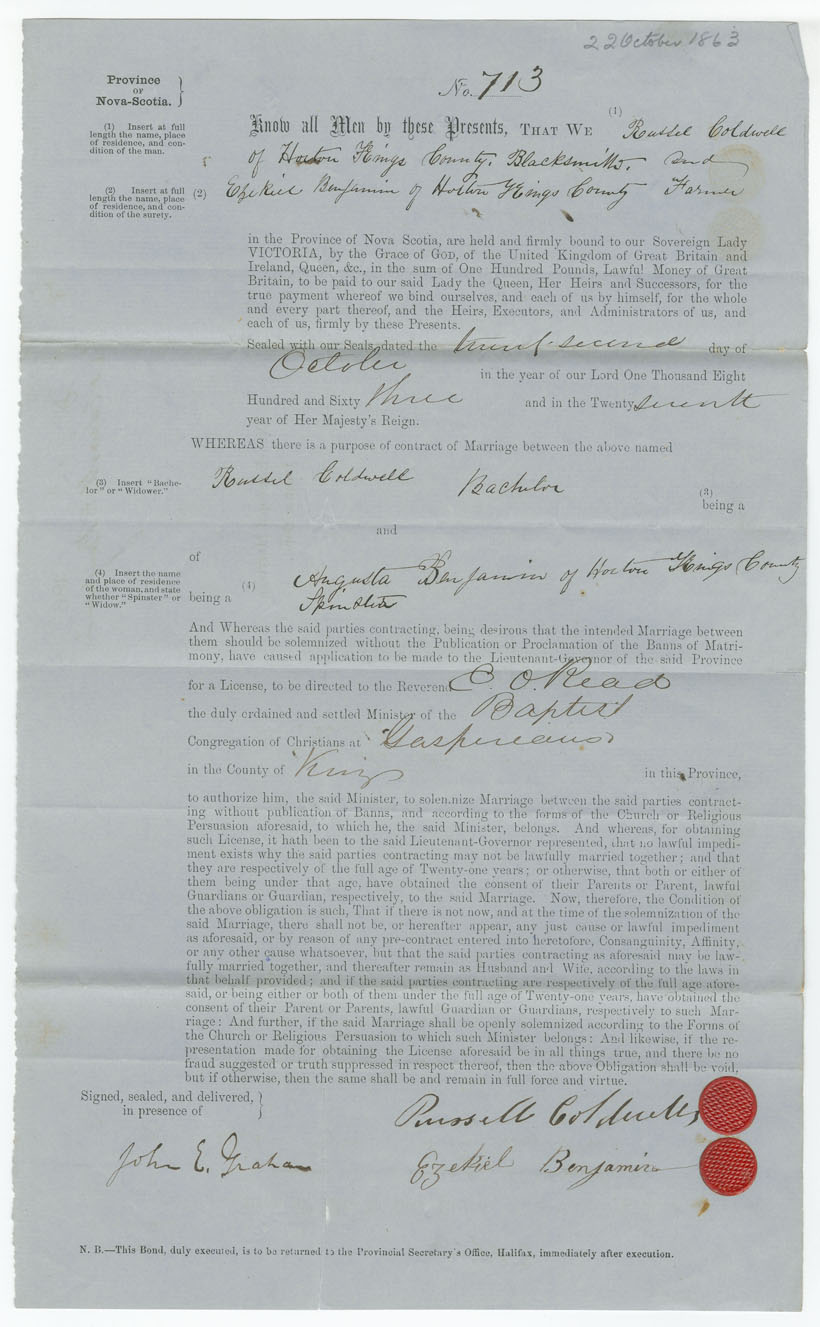 22 October 1863
Province
OF
Nova-Scotia.
No. 713
(1) Insert at full
length the name, place
of residence, and con-
dition of the man.
Know all Men by these Presents, THAT WE (1) Russel Coldwell
of Horton Kings County. Blacksmith. and
(2) Insert at full
length the name, place
of residence, and con-
dition of the surety.
(2) Ezekiel Benjamin of Horton Kings County Farmer
in the Province of Nova Scotia, are held and firmly bound to our Sovereign Lady
VICTORIA, by the Grace of GOD, of the United Kingdom of Great Britain and
Ireland, Queen, &c., in the sum of One Hundred Pounds, Lawful Money of Great
Britain, to be paid to our said Lady the Queen, Her Heirs and Successors, for the
true payment whereof we bind ourselves, and each of us by himself, for the whole
and every part thereof, and the Heirs, Executors, and Administrators of us, and
each of us, firmly by these Presents.
Sealed with our Seals, dated the twenty second day of
October in the year of our Lord One Thousand Eight
Hundred and Sixty three and in the Twenty seventh
year of Her Majesty's Reign.
WHEREAS there is a purpose of contract of Marriage between the above named
(3) Insert "Bache-
lor" or "Widower."
Russel Coldwell Bachelor
(3)
being a
and
of
(4) Insert the name
and place of residence
of the woman, and state
whether "Spinster" or
"Widow."
(4) Augusta Benjamin of Horton Kings County
being a Spinster
And Whereas the said parties contracting, being desirous that the intended Marriage between
them should be solemnized without the Publication or Proclamation of the Banns of Matri-
mony, have caused application to be made to the Lieutenant-Governor of the said Province
for a License, to be directed to the Reverend E. O. Read
the duly ordained and settled Minister of the Baptist
Congregation of Christians at Gaspereaux
in the County of Kings in this Province,
to authorize him, the said Minister, to solemnize Marriage between the said parties contract-
ing without publication of Banns, and according to the forms of the Church or Religious
Persuasion aforesaid, to which he, the said Minister, belongs. And whereas, for obtaining
such License, it hath been to the said Lieutenant-Governor represented, that no lawful impedi-
ment exists why the said parties contracting may not be lawfully married together; and that
they are respectively of the full age of Twenty-one years; or otherwise, that both or either of
them being under that age, have obtained the consent of their Parents or Parent, lawful
Guardians or Guardian, respectively, to the said Marriage. Now, therefore, the Condition of
the above obligation is such, That if there is not now, and at the time of the solemnization of the
said Marriage, there shall not be, or hereafter appear, any just cause or lawful impediment
as aforesaid, or by reason of any pre-contract entered into heretofore, Consanguinity, Affinity,
or any other cause whatsoever, but that the said parties contracting as aforesaid may be law-
fully married together, and thereafter remain as Husband and Wife, according to the laws in
that behalf provided; and if the said parties contracting are respectively of the full age afore-
said, or being either or both of them under the full age of Twenty-one years, have obtained the
consent of their Parent or Parents, lawful Guardian or Guardians, respectively to such Mar-
riage: And further, if the said Marriage shall be openly solemnized according to the Forms of
the Church or Religious Persuasion to which such Minister belongs: And likewise, if the re-
presentation made for obtaining the License aforesaid be in all things true, and there be no
fraud suggested or truth suppressed in respect thereof, then the above Obligation shall be void,
but if otherwise, then the same shall be and remain in full force and virtue.
Signed, sealed, and delivered,
in presence of
Russell Coldwell
John E. Graham
Ezekiel Benjamin
N. B.—This Bond, duly executed, is to be returned to the Provincial Secretary's Office, Halifax, immediately after execution.